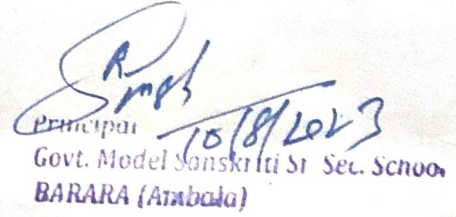 R Singh
10/8/2023
Principal
Govt. Model Sanskriti Sr Sec. School
BARARA (Ambala)